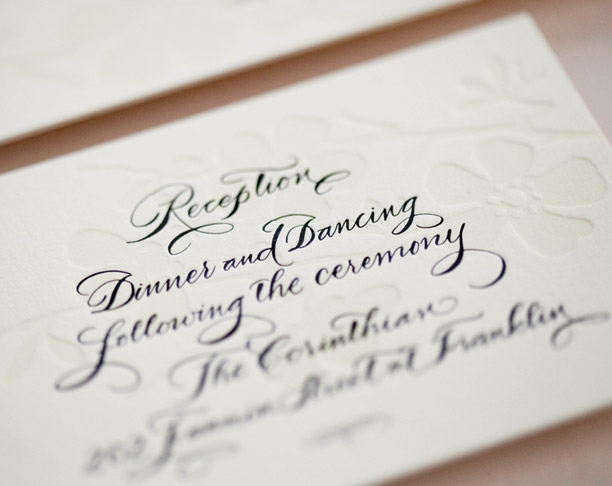 Reception
Dinner and Dancing
following the ceremony
The Corinthian
202 Fannin Street at Franklin